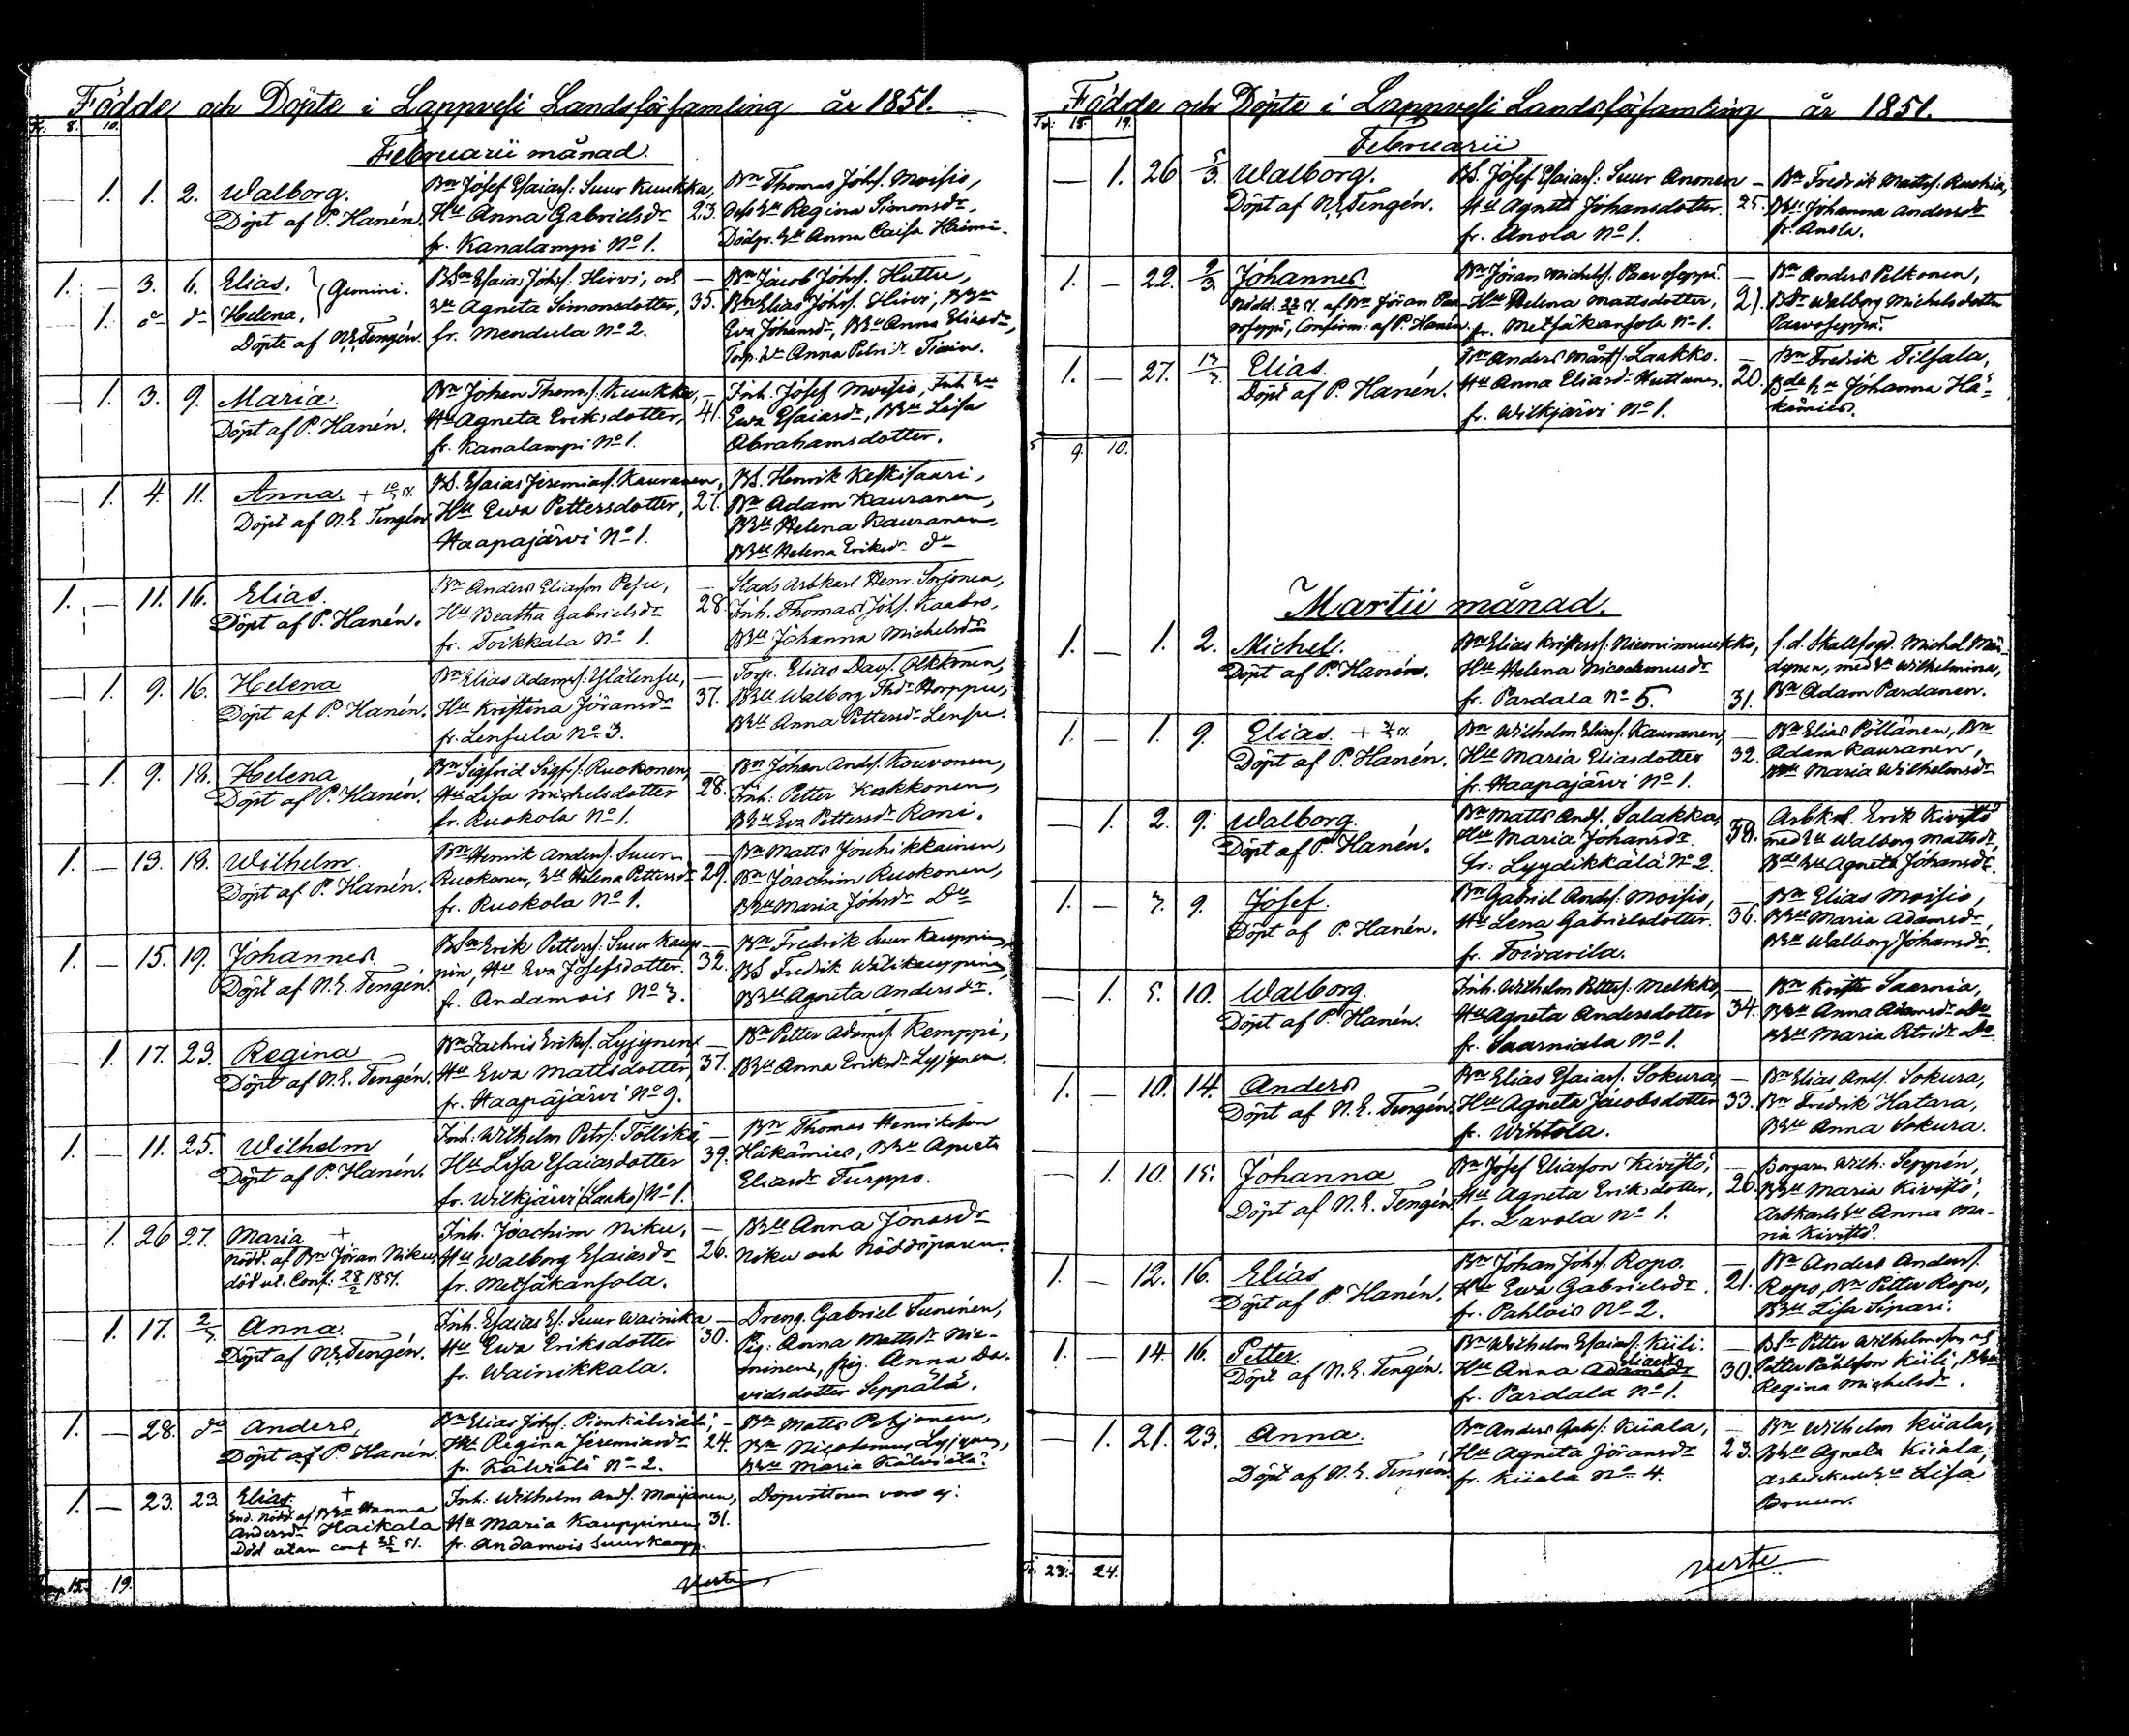 Födde och Döpte i Lappvesi Landsförsamling år 1851.
Tr: 8. 10.
Februarii månad.
1. 1. 2. Walborg.
Döpt af P. Hanén.
Bn Josef Esaiass: Suur Kuukka,
Hu Anna Gabrielsdr 23.
fr. Kanalampi No 1.
Bn Thomas Johss. Moisio,
Regina Simonsdr,
Anna Caisa
1. — 3. 6. Elias. Gemini.
1. do do Helena,
Döpte af N.E. Tengén.
BSn Esaias Johss. Hirvi, och
Agneta Simonsdotter, 35.
fr. Mendula No 2.
Bn Jacob Johss. Huttu,
Bn Elias Johss. Hirvi,
Eva Johansdr, Anna Eliasdr,
Anna Petrisdr Tiain.
— 1. 3. 9. Maria.
Döpt af P. Hanén.
Bn Johan Thomss. Kuukka,
Hu Agneta Eriksdotter, 41.
fr. Kanalampi No 1.
Inh. Josef Moisio, Inh.
Ewa Esaiasdr, Lisa
Abrahamsdotter.
— 1. 4. 11. Anna. +
Döpt af N.E. Tengén
BS. Esaias Jeremiass. Kauranen,
Hu Ewa Pettersdotter, 27.
Haapajärvi No 1.
BS. Henrik Keskisaari,
Bn Adam Kauranen,
Helena Kauranen,
Helena Eriksdr do
1. — 11. 16. Elias.
Döpt af P. Hanén.
Bn Anders Eliasson Pesu,
Hu Beatha Gabrielsdr 28.
fr. Toikkala No 1.
Stads Arbkarl Henr. Sorjonen,
Inh. Thomas Johs. Kaabro,
Johanna Michelsdr
— 1. 9. 16. Helena
Döpt af P. Hanén.
Bn Elias Adamss: Ylälensu,
Hu Kristina Jöransdr 37.
fr. Lensula No 3.
Torp. Elias Davs. Olkkonen,
Walborg Thdr Horppu,
Anna Pettersdr Lensu.
— 1. 9. 18. Helena
Döpt af P. Hanén.
Bn Sigfrid Sigfs. Ruokonen,
Hu Lisa Michelsdotter 28.
fr. Ruokola No 1.
Bn Johan Ands. Kouvonen,
Inh. Petter Kakkonen,
Eva Pettersdr Rani.
1. — 13. 18. Wilhelm.
Döpt af P. Hanén.
Bn Henrik Anderss. Suur
Ruokonen, Helena Pettersdr 29.
fr. Ruokola No 1.
Bn Matts Jouhikkainen,
Bn Joachim Ruokonen,
Maria Johsdr Do
1. — 15. 19. Johannes.
Döpt af N.E. Tengén.
BSn Erik Petters: Suur Kaup-
pin, Hu Eva Josefsdotter. 32.
fr. Andamois No 3.
Bn Fredrik Suur Kauppin,
BS Fredrik Wälikauppinen,
Agneta Andersdr.
— 1. 17. 23. Regina
Döpt af N.E. Tengén.
Bn Zachris Erikss. Lyijynen,
Hu Ewa Mattsdotter, 37.
fr. Haapajärvi No 9.
Bn Petter Adams. Kemppi,
Anna Eriksdr Lyijynen.
1. — 11. 25. Wilhelm
Döpt af P. Hanén.
Inh: Wilhelm Petrs: Tölliki
Hu Lisa Esaiasdotter 39.
fr. Wilkjärvi (Laako) No 1.
Bn Thomas Henriksson
Häkämies, Agneta
Eliasdr Turppo.
1. 26 27. Maria +
Nödd. af Bn Jöran Niku,
död ut. Conf: 28/2 1851.
Inh. Joachim Niku,
Hu Walborg Esaiasdr 26.
fr. Metsäkansola.
Anna Jönasdr
Niku och Nöddöparen.
— 1. 17. 2/3 Anna.
Döpt af N.E. Tengén.
Inh. Esaias Es: Suur Wainika
Hu Ewa Eriksdotter 30.
fr. Wainikkala.
Dreng. Gabriel Tuninen,
Pig. Anna Mattsdr Nie-
minen, pig. Anna Da-
vidsdotter Seppälä.
1. — 28. do Anders,
Döpt af P. Hanén.
Bn Elias Johss. Pienkälviälä,
Hu Regina Jeremiasdr 24.
fr. Kälviälä No 2.
Bn Matts Pohjonen,
Bn Nicodemus Lyijynen,
Maria Kälviälä.
1. — 23. 23. Elias. +
nödd. af Hanna
Andersdr Haikala
Död utan conf 51.
Inh: Wilhelm Ands. Maijanen,
Hu Maria Kauppinen 31.
fr. Andamois Suur Kaupp.
Dopvittnen voro ej.
15. 19.
Verte
Födde och Döpte i Lappvesi Landsförsamling år 1851.
Tr: 15. 19.
Februarii
— 1. 26 5/3. Walborg.
Döpt af N.E. Tengén.
BS. Josef Esaiass. Suur Anonen
Hu Agneta Johansdotter 25.
fr. Anola No 1.
Bn Fredrik Mattss. Ruohia,
Johanna Andersdr
fr. Anola.
1. — 22. 9/3. Johannes.
Nödd: af Bn Jöran Paa-
voseppä, Confirm: af P. Hanén.
Bn Jöran Michels. Paavoseppä
Hu Helena Mattsdotter, 21.
fr. Metsäkansola No 1.
Bn Anders Pelkonen,
Walborg Michelsdotter
Parvoseppä.
1. — 27. Elias.
Döpt af P. Hanén.
Bn Anders Mårtss: Laakko.
Hu Anna Eliasdr Huttunen. 20.
fr. Wilkjärvi No 1.
Bn Fredrik Tilsala,
Johanna Hä-
kämies.
9. 10.
Martii månad.
1. — 1. 2. Michel.
Döpt af P. Hanén.
Bn Elias Kristerss. Niemimuukko,
Hu Helena Nicodemusdr
fr. Pardala No 5. 31.
f.d. Skallfogd. Michel Män-
dynen, med Wilhelmina,
Bn Adam Pardanen.
1. — 1. 9. Elias. +
Döpt af P. Hanén.
Bn Wilhelm Eliass. Kauranen,
Hu Maria Eliasdotter 32.
fr. Haapajärvi No 1.
Bn Elias Pöllänen, Bn
Adam Kauranen,
Maria Wilhelmsdr
— 1. 2. 9. Walborg.
Döpt af P. Hanén.
Bn Matts Ands. Salakka,
Hu Maria Johansdr 38.
fr: Lyydikkälä No 2.
Arbk. Erik Kivistö
med Walborg Mattsdr,
Agneta Johansdr.
1. — 7. 9. Josef.
Döpt af P. Hanén.
Bn Gabriel Ands. Moisio,
Hu Lena Gabrielsdotter. 36.
fr. Toivarila.
Bn Elias Moisio,
Maria Adamsdr,
Walborg Johansdr.
— 1. 5. 10. Walborg.
Döpt af P. Hanén.
Inh. Wilhelm Petters. Melkko,
Hu Agneta Andersdotter 34.
fr. Saarniala No 1.
Bn Krister Saarnia,
Anna Adamsdr Do
Maria Petrisdr Do
1. — 10. 14. Anders
Döpt af N.E. Tengén.
Bn Elias Esaiass. Sokura,
Hu Agneta Jacobsdotter 33.
fr. Wihtola.
Bn Elias Ands. Sokura,
Bn Fredrik Hatara,
Anna Sokura.
— 1. 10. 15. Johanna
Döpt af N.E. Tengén
Bn Josef Eliasson Kivistö,
Hu Agneta Eriksdotter, 26.
fr. Lavola No 1.
Borgaren Wilh: Seppén,
Maria Kivistö,
Arbkarls Anna Ma-
ria Kivistö.
1. — 12. 16. Elias
Döpt af P. Hanén.
Bn Johan Johss. Ropo.
Hu Ewa Gabrielsdr. 21.
fr. Pahlois No 2.
Bn Anders Anderss.
Ropo, Bn Petter Ropo,
Lisa Sipari.
1. — 14. 16. Petter.
Döpt af N.E. Tengén.
Bn Wilhelm Esaiass. Kiili.
Hu Anna Adamsdr Eliasdr 30.
fr. Pardala No 1.
Petter Wilhelmsson och
Petter Påhlsson Kiili,
Regina Michelsdr.
— 1. 21. 23. Anna.
Döpt af N.E. Tengén.
Bn Anders Gabs. Kiiala,
Hu Agneta Jöransdr 23.
fr. Kiiala No 4.
Bn Wilhelm Kiiala,
Agneta Kiiala,
Lisa
Tr. 23. 24.
Verte